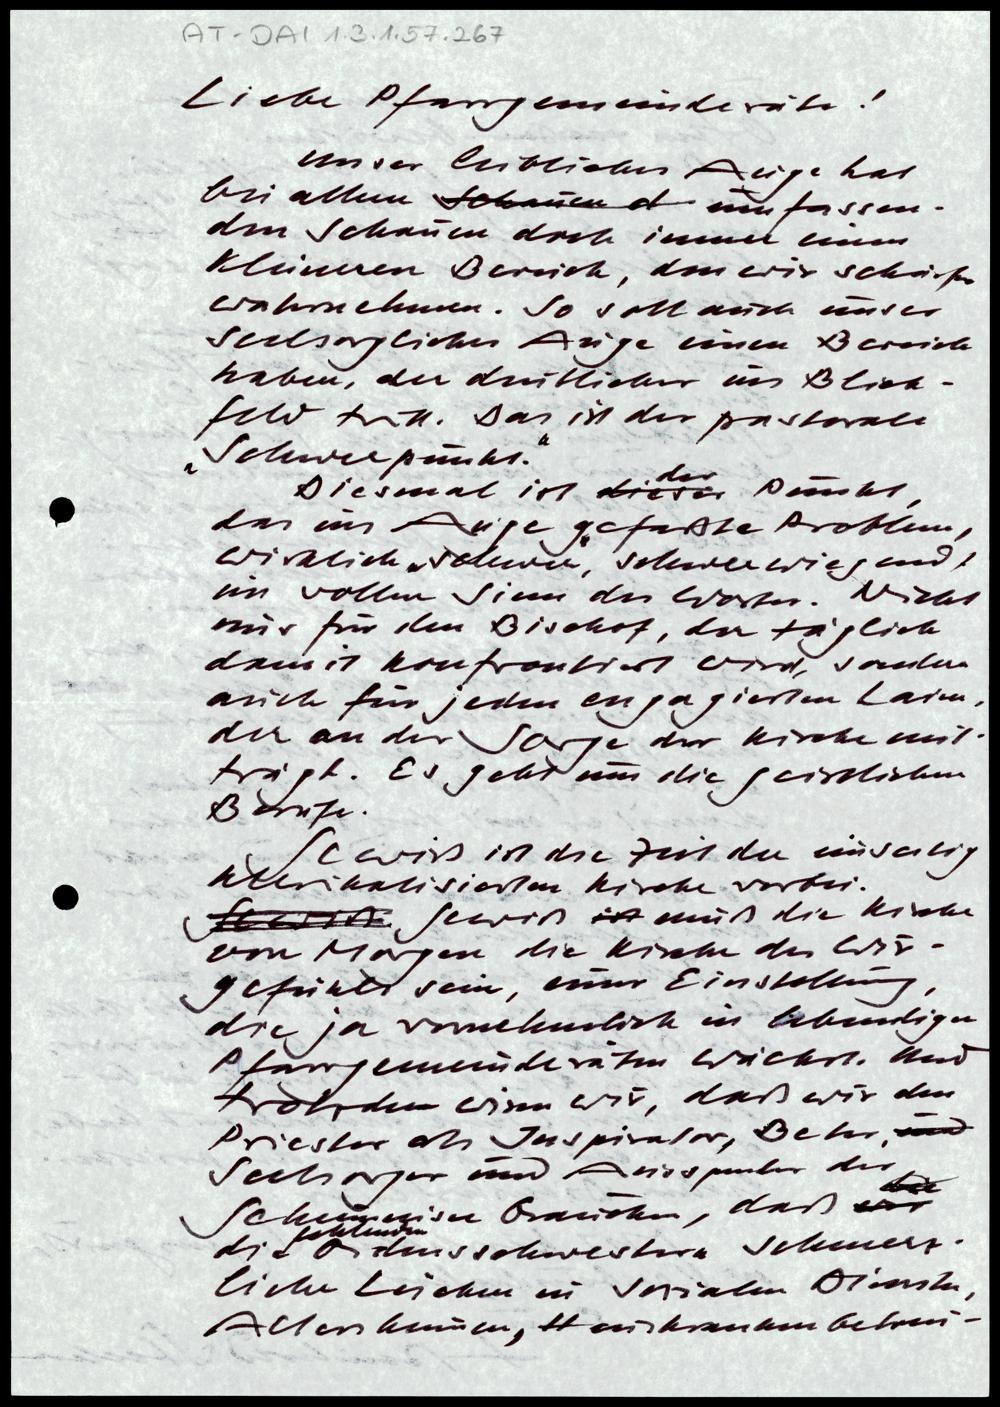 AT-DAI 1.3.1.57.267
Liebe Pfarrgemeinderäte!
Unser leibliches Auge hat
bei allem Schauen d umfassen-
den Schauen doch immer einen
kleineren Bereich, den wir schärfer
wahrnehmen. So soll auch unser
seelsorgliches Auge einen Bereich
haben, der deutlicher ins Blick-
feld tritt. Das ist der pastorale
„Schwerpunkt."
Diesmal ist dieser der Punkt,
das ins Auge gefaßte Problem,
wirklich „schwer", schwerwiegend,
im vollen Sinn des Wortes. Nicht
nur für den Bischof, der täglich
damit konfrontiert wird, sondern
auch für jeden engagierten Laien,
der an der Sorge der Kirche mit-
trägt. Es geht um die geistlichen
Berufe.
Gewiß ist die Zeit der einseitig
klerikalisierten Kirche vorbei.
Gewiß Gewiß ist muß die Kirche
von Morgen die Kirche des Wir-
gefühls sein, einer Einstellung,
die ja vornehmlich in lebendigen
Pfarrgemeinderäten wächst. Und
trotzdem wissen wir, daß wir den
Priester als Inspirator, Beter, und
Seelsorger und Ausspender der
Geheimnisse brauchen, daß wir
die fehlenden Ordensschwestern schmerz-
liche Lücken in sozialen Diensten,
Altersheimen, Hauskrankenbetreu-